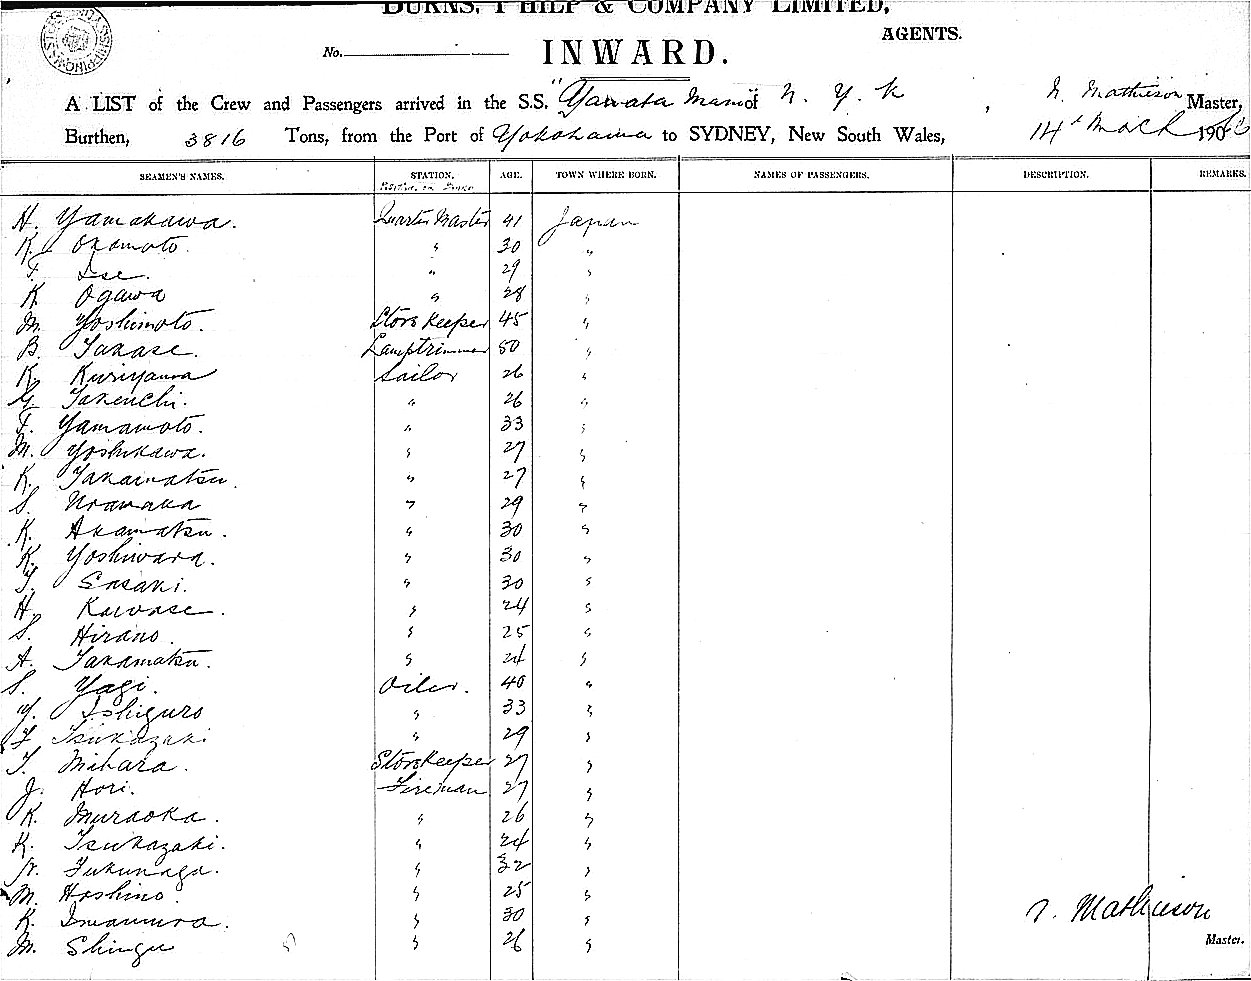 BURNS, PHILP & COMPANY LIMITED,
AGENTS.
No.
INWARD.
A LIST of the Crew and Passengers arrived in the S.S. "Yawata Maru of N. Y. K , N. Mathieson Master,
Burthen, 3816 Tons, from the Port of Yokohama to SYDNEY, New South Wales, 14th March 190
SEAMEN'S NAMES. STATION. AGE. TOWN WHERE BORN. NAMES OF PASSENGERS. DESCRIPTION. REMARKS.
H. Yamakawa. Quarter Master 41 Japan
K. Okamoto. " 30 "
T. Ise. " 29 "
K. Ogawa " 28 "
M. Yoshimoto. Store Keeper 45 "
B. Takase. Lamptrimmer 50 "
K. Kuriyama Sailor 26 "
G. Takenchi. " 26 "
T. Yamamoto. " 33 "
M. Yoshikawa. " 27 "
K. Takamatsu. " 27 "
S. " 29 "
K. Akamatsu. " 30 "
K. Yoshiwara. " 30 "
T. Sasaki. " 30 "
H. Kawase. " 24 "
S. Hirano. " 25 "
A. Takamatsu. " 24 "
S. Yagi. Oiler. 40 "
Y. Ishiguro " 33 "
Tsukazaki " 29 "
T. Mihara. Store Keeper 27 "
J. Hori. Fireman 27 "
K. Muraoka. " 26 "
K. Tsukazaki. " 24 "
N. Fukunaga. " 32 "
M. Hoshino. " 25 "
K. Imamura. " 30 "
M. Shingu " 26 "
N. Mathieson
Master.